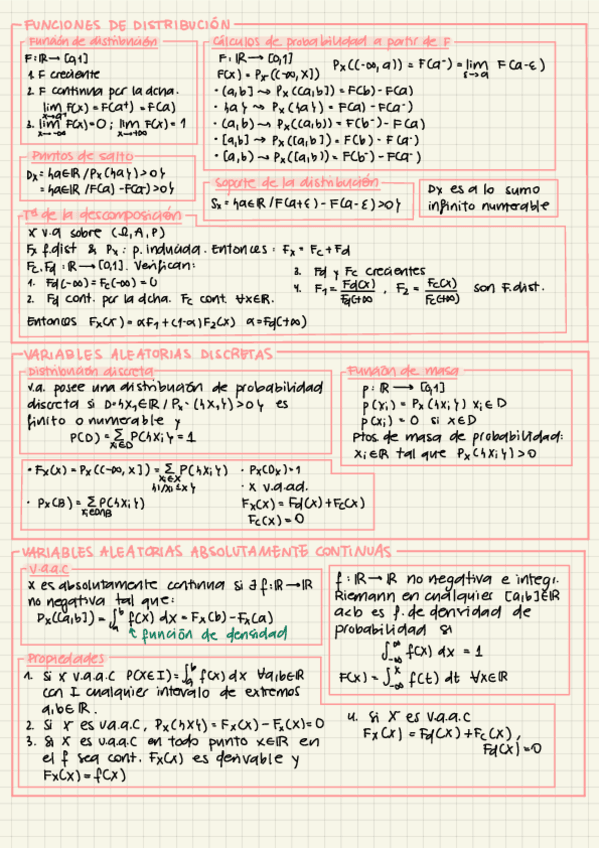 FUNCIONES DE DISTRIBUCIÓN
Función de distribución
F: ℝ → [0,1]
1. F creciente
2. F continua por la dcha.
lim F(x) = F(a⁺) = F(a)
x→a⁺
3. lim F(x) = 0 ; lim F(x) = 1
x→-∞ x→+∞
Cálculos de probabilidad a partir de F
F: ℝ → [0,1]
F(x) = Px((-∞, x]) Px((-∞, a)) = F(a⁻) = lim F(a-ε)
ε→a
· (a,b] → Px((a,b]) = F(b) - F(a)
· {a} → Px({a}) = F(a) - F(a⁻)
· (a,b) → Px((a,b)) = F(b⁻) - F(a)
· [a,b] → Px([a,b]) = F(b) - F(a⁻)
· [a,b) → Px([a,b)) = F(b⁻) - F(a⁻)
Puntos de salto
Dx = {a∈ℝ / Px({a}) > 0}
= {a∈ℝ / F(a) - F(a⁻) > 0}
Soporte de la distribución
Sx = {a∈ℝ / F(a+ε) - F(a-ε) > 0}
Dx es a lo sumo
infinito numerable
Tª de la descomposición
X v.a sobre (Ω, A, P)
Fx f.dist & Px: p. inducida. Entonces: Fx = Fc + Fd
Fc, Fd: ℝ → [0,1]. Verifican:
1. Fd(-∞) = Fc(-∞) = 0
2. Fd cont. por la dcha. Fc cont. ∀x∈ℝ.
3. Fd y Fc crecientes
4. F₁ = Fd(x)/Fd(+∞) , F₂ = Fc(x)/Fc(+∞) son F.dist.
Entonces Fx(x) = αF₁ + (1-α)F₂(x) α = Fd(+∞)
VARIABLES ALEATORIAS DISCRETAS
Distribución discreta
v.a. posee una distribución de probabilidad
discreta si D = {xi∈ℝ / Px({xi}) > 0} es
finito o numerable y
P(D) = Σ P{xi} = 1
xi∈D
Función de masa
p: ℝ → [0,1]
p(xi) = Px({xi}) xi∈D
p(xi) = 0 si x∈D
Ptos de masa de probabilidad:
xi∈ℝ tal que Px({xi}) > 0
· Fx(x) = Px((-∞, x]) = Σ P{xi}
xi∈X
{i/xi≤x}
· Px(B) = Σ P{xi}
xi∈D∩B
· Px(Dx) = 1
· X v.a.d.
Fx(x) = Fd(x) + Fc(x)
Fc(x) = 0
VARIABLES ALEATORIAS ABSOLUTAMENTE CONTINUAS
v.a.a.c
X es absolutamente continua si ∃ f: ℝ → ℝ
no negativa tal que:
Px((a,b]) = ∫ₐᵇ f(x) dx = Fx(b) - Fx(a)
función de densidad
f: ℝ → ℝ no negativa e integr.
Riemann en cualquier [a,b]∈ℝ
a<b es f. de densidad de
probabilidad si
∫₋∞^∞ f(x) dx = 1
F(x) = ∫₋∞ˣ f(t) dt ∀x∈ℝ
Propiedades
1. Si X v.a.a.c P(X∈I) = ∫ₐᵇ f(x) dx ∀a,b∈ℝ
con I cualquier intervalo de extremos
a,b∈ℝ.
2. Si X es v.a.a.c, Px({x}) = Fx(x) - Fx(x⁻) = 0
3. Si X es v.a.a.c en todo punto x∈ℝ en
el f sea cont. Fx(x) es derivable y
Fx(x) = f(x)
4. Si X es v.a.a.c
Fx(x) = Fd(x) + Fc(x),
Fd(x) = 0